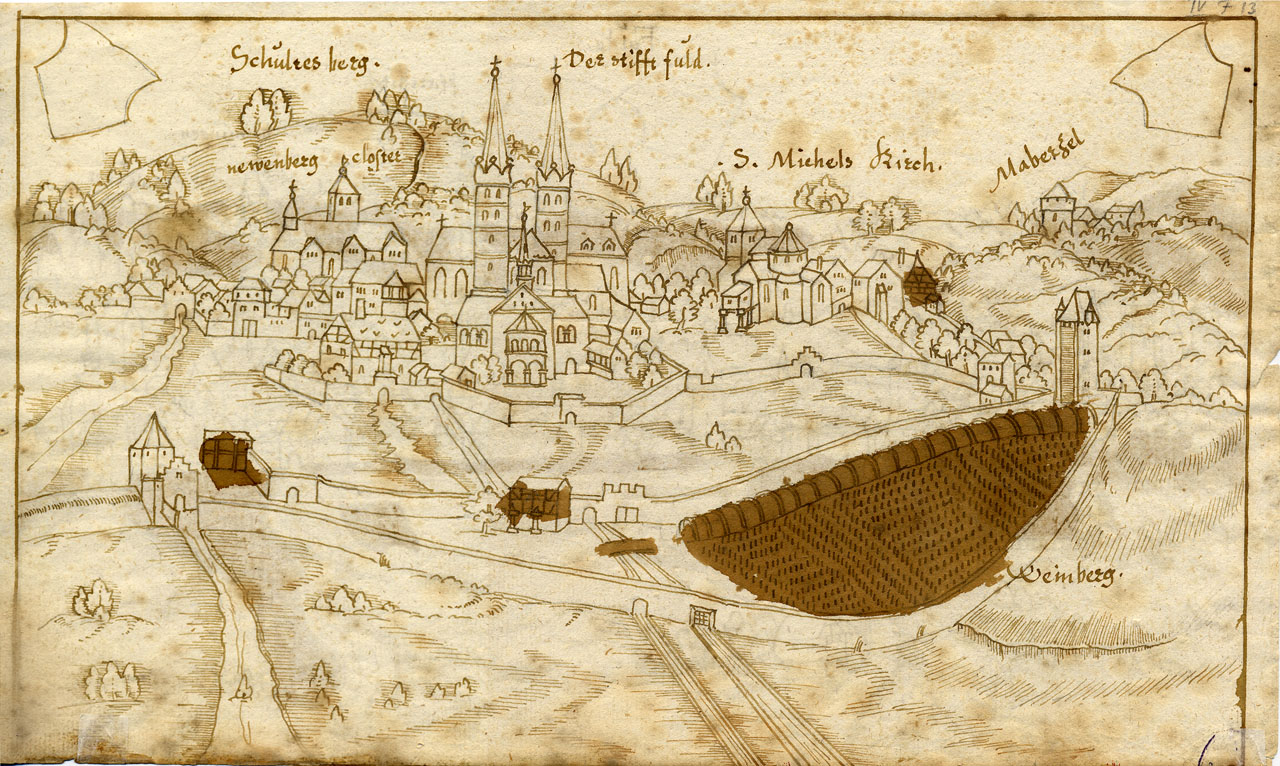 IV 7 13
Schultes berg.
Der stifft fuld.
newenberg closter
. S. Michels Kirch.
Maberzel
Weinberg.